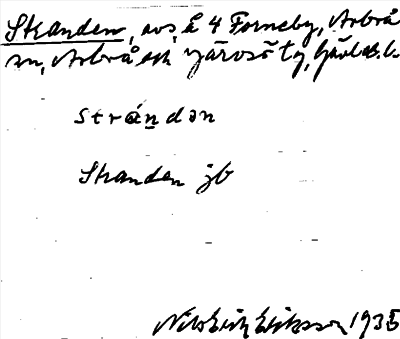 Stranden, avs, å 4 Forneby, Arbrå
sn, Arbrå och Järvsö tg, Gävleb. l.
strándən
Stranden jb
Nils Erik Eriksson 1935